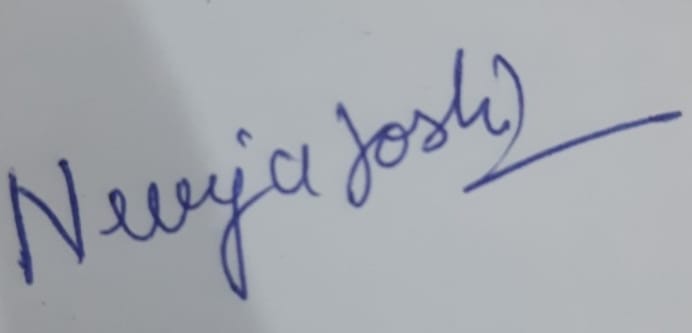 Neerja Joshi